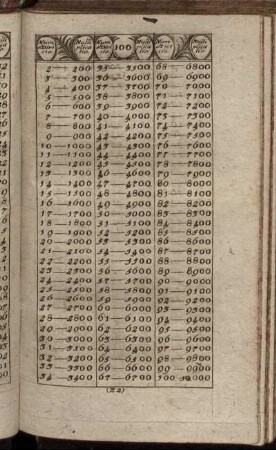 Multi plica tio 100 Multi plica tio Multi plica tio
2—200 35—3500 68—6800
3—300 36—3600 69—6900
4—400 37—3700 70—7000
5—500 38—3800 71—7100
6—600 39—3900 72—7200
7—700 40—4000 73—7300
8—800 41—4100 74—7400
9—900 42—4200 75—7500
10—1000 43—4300 76—7600
11—1100 44—4400 77—7700
12—1200 45—4500 78—7800
13—1300 46—4600 79—7900
14—1400 47—4700 80—8000
15—1500 48—4800 81—8100
16—1600 49—4900 82—8200
17—1700 50—5000 83—8300
18—1800 51—5100 84—8400
19—1900 52—5200 85—8500
20—2000 53—5300 86—8600
21—2100 54—5400 87—8700
22—2200 55—5500 88—8800
23—2300 56—5600 89—8900
24—2400 57—5700 90—9000
25—2500 58—5800 91—9100
26—2600 59—5900 92—9200
27—2700 60—6000 93—9300
28—2800 61—6100 94—9400
29—2900 62—6200 95—9500
30—3000 63—6300 96—9600
31—3100 64—6400 97—9700
32—3200 65—6500 98—9800
33—3300 66—6600 99—9900
34—3400 67—6700 100 10000